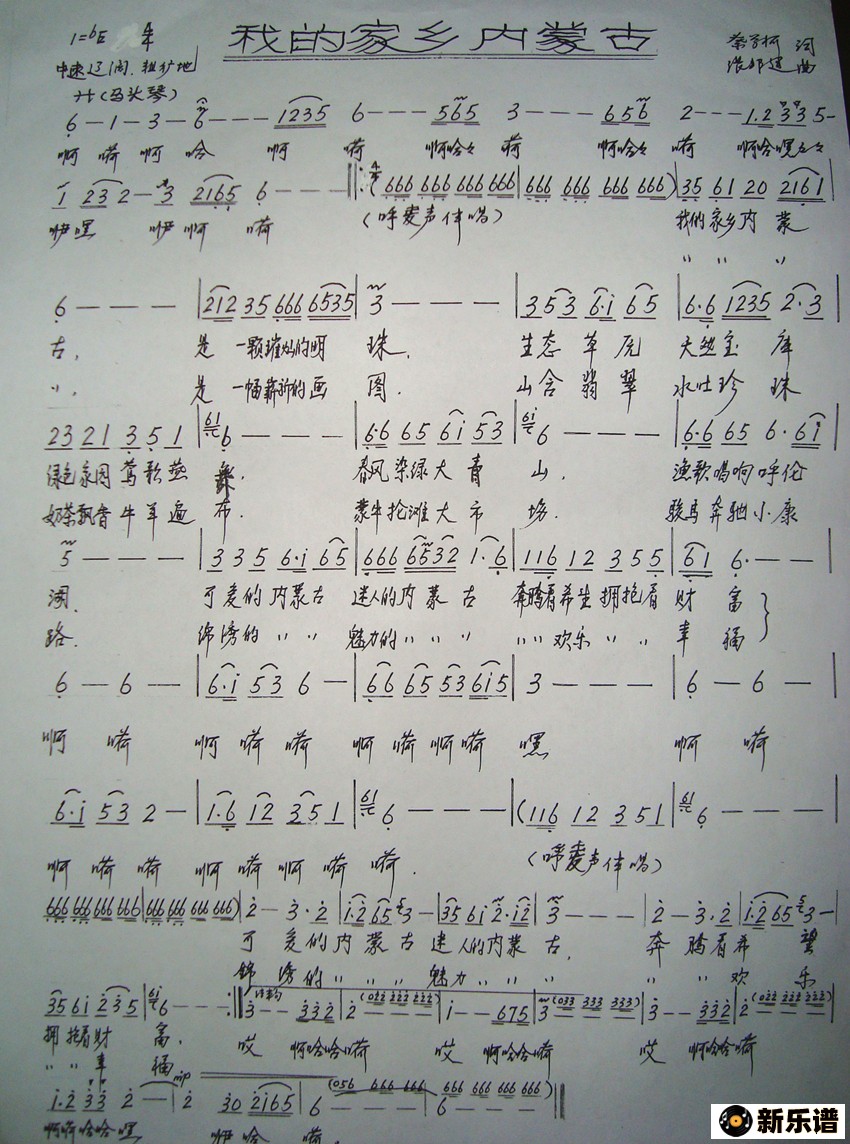 我的家乡内蒙古
1=♭E
词
曲
中速 辽阔、粗犷地
廾(马头琴)
6 — 1 — 3 — 6 — — — 1235 6 — — — 565 3 — — — 656 2 — — — 1.2 33 5 —
啊 嗬 啊 哈 啊 嗬 啊哈々 嗬 啊哈々 嗬 啊哈嘿々々
1 23 2 — 3 2165 6 — — — 666 666 666 666 666 666 666 666 35 61 20 2161
咿嘿 咿 啊 嗬 (呼麦声伴唱) 我的家乡内 蒙
6 — — — 212 35 666 6535 3 — — — 353 6·i 65 6·6 1235 2·3
古, 是 一颗璀灿的明 珠, 生态 草原 天然宝 库
是 一幅崭新的画 图. 山含 翡翠 水吐珍 珠
23 21 3 5 1 6 — — — 6·6 65 6i 53 6 — — — 6·6 65 6·6i
绿色家园 莺歌燕 舞, 春风染绿大青 山, 渔歌唱响呼伦
奶茶飘香 牛羊遍 布. 蒙牛抢滩大市 场. 骏马奔驰小康
5 — — — 3 3 5 6·i 65 666 6532 1·6 116 12 3 5 5 61 6· — —
湖, 可爱的内蒙古 迷人的内蒙古 奔腾着希望 拥抱着 财 富
路. 锦绣的〃〃 魅力的〃〃〃 〃〃欢乐〃〃 幸 福
6 — 6 — 6·i 53 6 — 66 65 53 6i5 3 — — — 6 — 6 —
啊 嗬 啊 嗬 嗬 啊 嗬啊嗬 嘿 啊 嗬
6·i 53 2 — 1·6 12 351 6 — — — (116 12 3 51 6 — — —
啊 嗬 嗬 啊 嗬 啊 嗬 嗬. (呼麦声伴唱)
666 666 666 666 666 666 666 666) 2 — 3·2 i·2 65 3 — 35 6i 2·i2 3 — — — 2 — 3·2 i·2 65 3 —
可 爱的内 蒙古 迷人的内蒙 古, 奔 腾着希 望
锦 绣的〃〃〃 魅力〃〃〃 〃 〃〃欢 乐
35 6i 235 6 — — — 3 — — 332 2 (022 222 222 222) i — — 675 3 (033 333 333 333) 3 — — 332 2 (022 222 222 222)
拥 抱着财 富, 哎 啊哈哈嗬 哎 啊哈哈嗬 哎 啊哈哈嗬
〃〃幸 福
i·2 33 2 — 2 30 2165 6 — — — 6 — — —
啊嗬哈哈嘿 咿哈 嗬.
mp
新乐谱